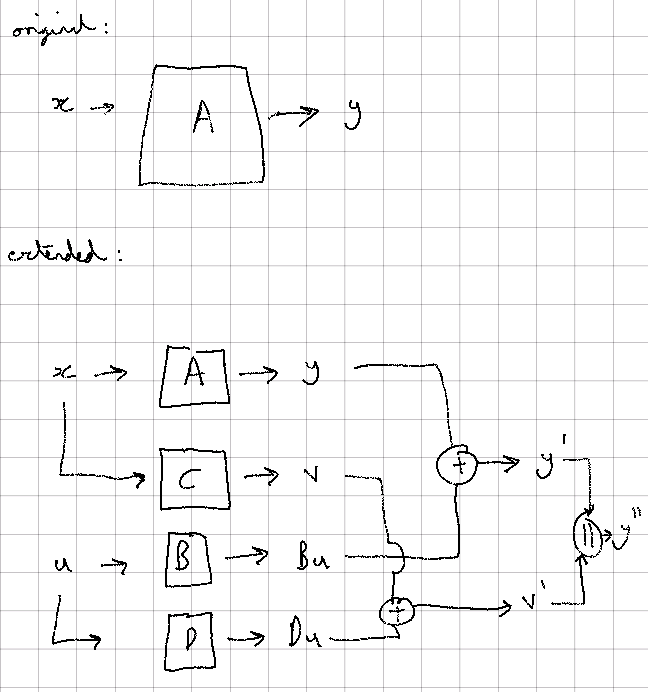 original:
x → A → y
extended:
x → A → y
C → v
+ → y'
|| → y"
u → B → Bu
+ → v'
D → Du